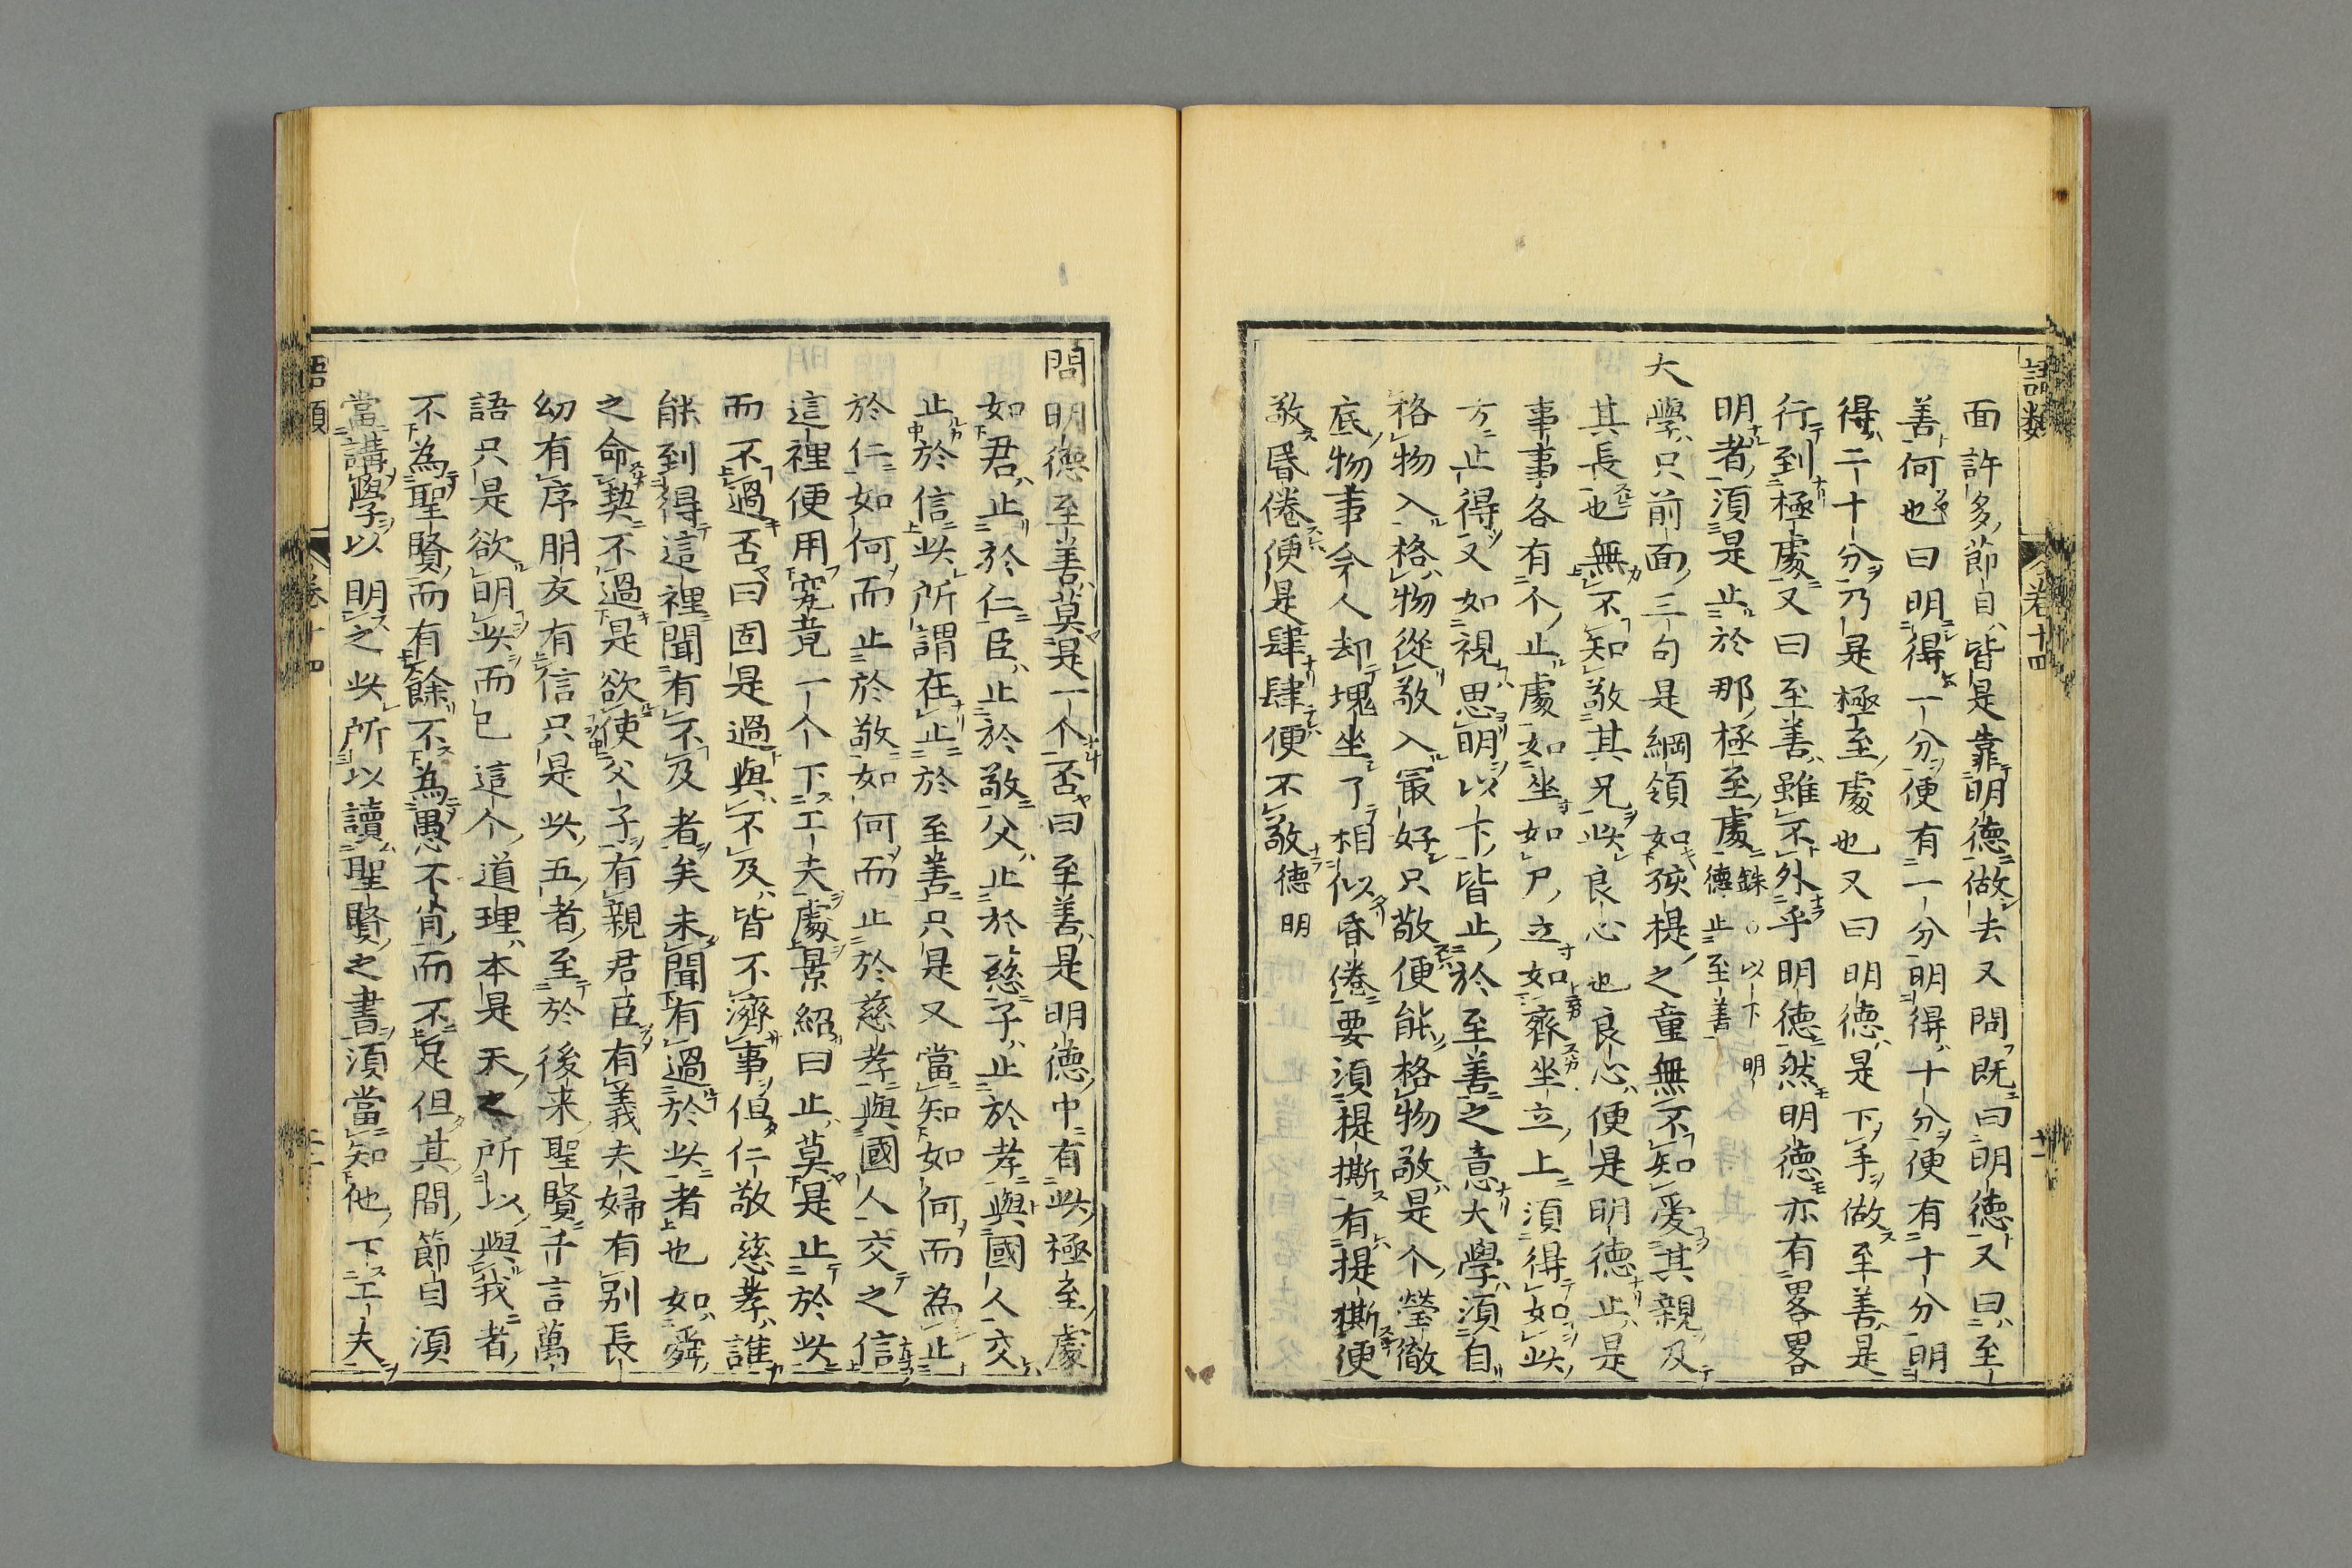 語類 卷十四
面許多節目皆是靠明德做去又問既曰明德又曰至
善何也曰明得一分便有一分明得十分便有十分明
得二十分乃是極至處也又曰明德是下手做至善是
行到極處又曰至善雖不外乎明德然明德亦有畧畧
明者須是止於那極至處銖〇以下明德止至善
大學只前面三句是綱領如孩提之童無不知愛其親及
其長也無不知敬其兄此良心也良心便是明德止是
事事各有个止處如坐如尸立如齊坐立上須得如此
方止得又如視思明以下皆止於至善之意大學須自
格物入格物從敬入最好只敬便能格物敬是个瑩徹
底物事今人却塊坐了相似昏倦要須提撕有提撕便
敬昏倦便是肆肆便不敬德明
問明德至善莫是一个否曰至善是明德中有此極至處
如君止於仁臣止於敬父止於慈子止於孝與國人交
止於信此所謂在止於至善只是又當知如何而為止
於仁如何而止於敬如何而止於慈孝與國人交之信
這裡便用究竟一个下工夫處景紹曰止莫是止於此
而不過否曰固是過與不及皆不濟事但仁敬慈孝誰
能到得這裡聞有不及者矣未聞有過於此者也如舜
之命契不過是欲使父子有親君臣有義夫婦有別長
幼有序朋友有信只是此五者至於後来聖賢千言萬
語只是欲明此而已這个道理本是天之所以與我者
不為聖賢而有餘不為愚不肖而不足但其間節目須
當講學以明之此所以讀聖賢之書須當知他下工夫
語類 卷十四